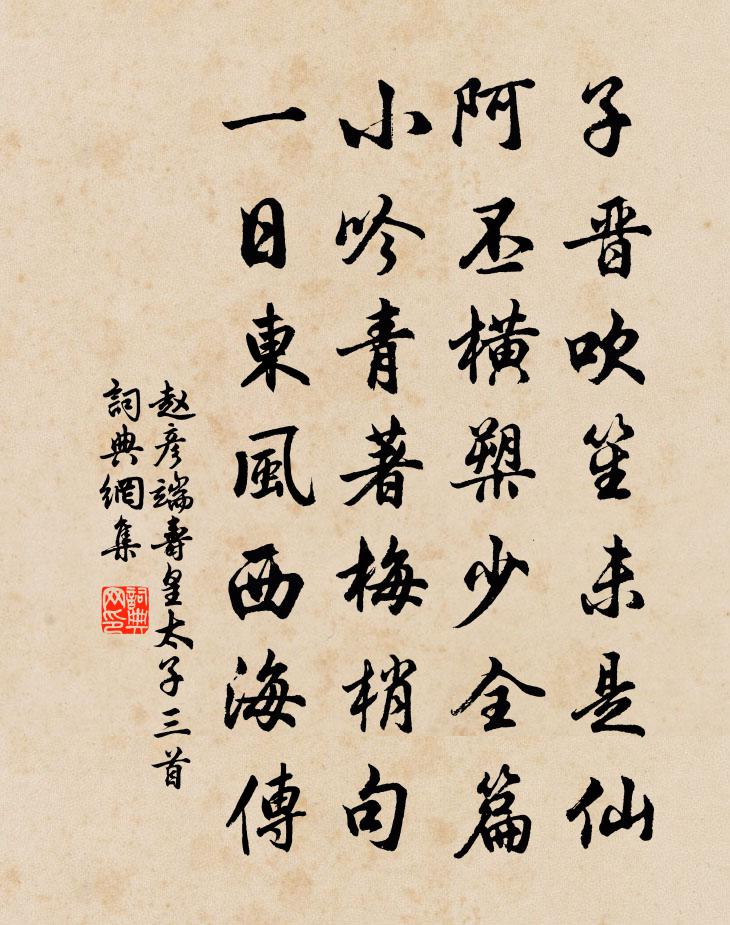 子晋吹笙未是仙
阿丕橫槊少全篇
小吟青著梅梢句
一日東風西海傳
赵彦端壽皇太子三首
詞典網集
詞典网印